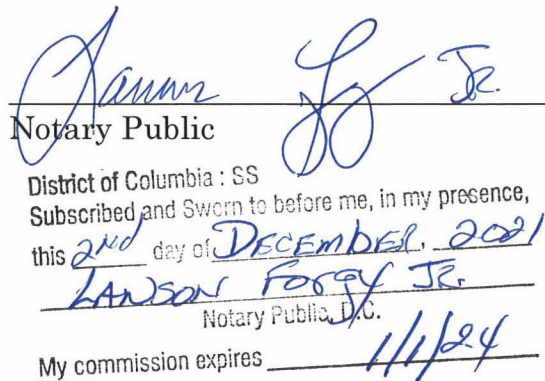 Jr.
Notary Public
District of Columbia : SS
Subscribed and Sworn to before me, in my presence,
this 2nd day of DECEMBER, 2021
LANSON Forgy JR.
Notary Public, D.C.
My commission expires 1/1/24